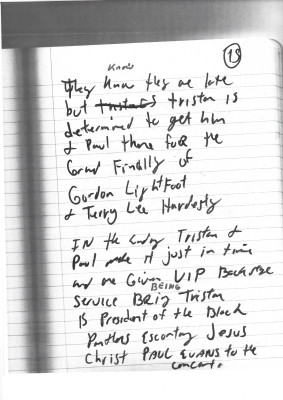 18
Know
They know they are late
but Tristan is
determined to get him
& Paul there for the
Grand Finally of
Gordon LightFoot
& Terry Lee Hardesty
IN the Ending Tristan &
Paul make it just in time
and are Given VIP Backstage
BEING
Service Being Tristan
Is President of the Black
Panthers Escorting Jesus
Christ PAUL EVANS to the
concert.